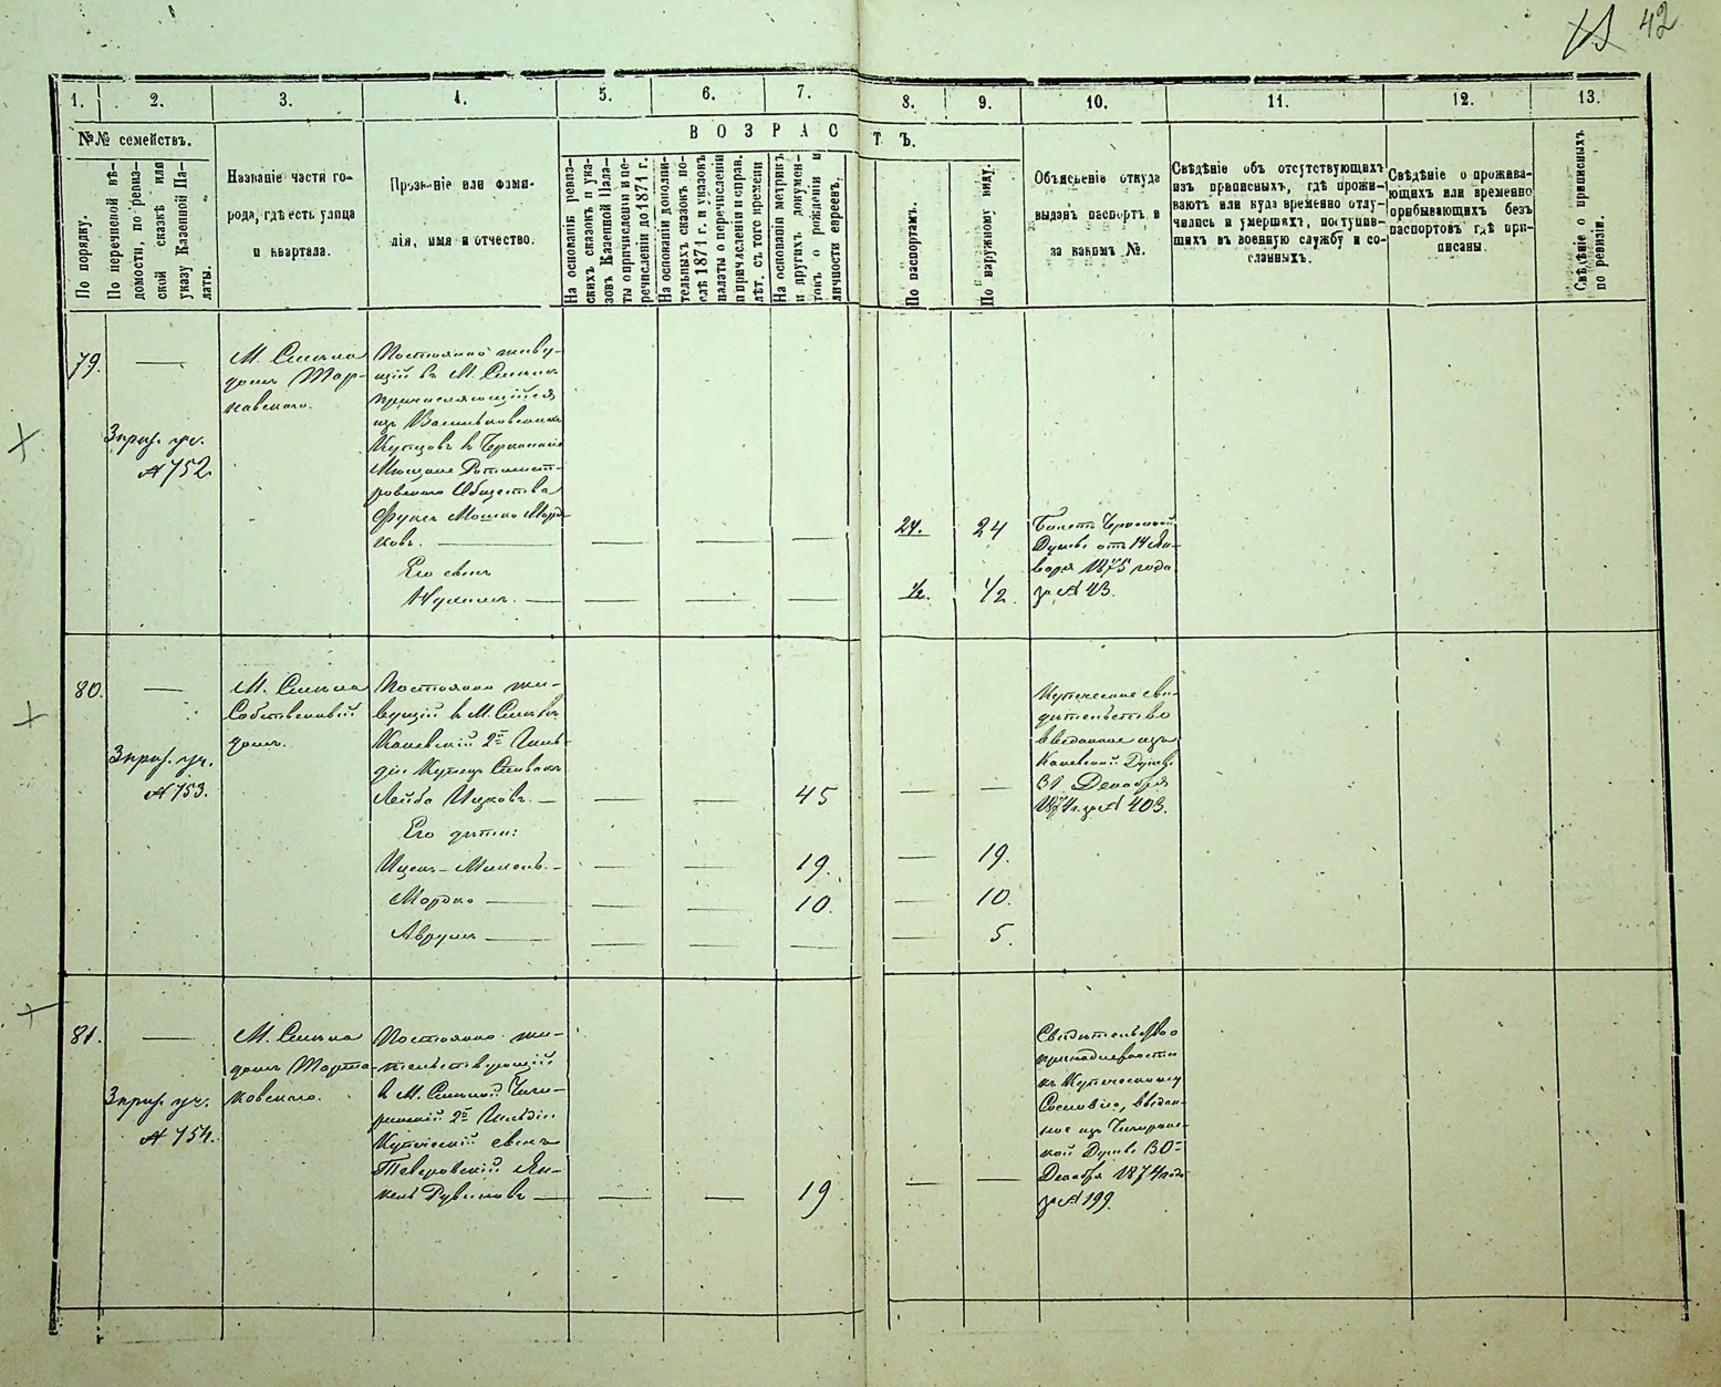 42
1. 2. 3. 4. 5. 6. 7. 8. 9. 10. 11. 12. 13.
№№ семействъ.
По порядку.
По перечневой вѣ-
домости, по ревиз-
ской сказкѣ или
указу Казенной Па-
латы.
Названіе части го-
рода, гдѣ есть улица
и квартала.
Прозваніе или фами-
лія, имя и отчество.
ВОЗРАСТЪ.
На основаніи ревиз-
скихъ сказокъ и ука-
зовъ Казенной Пала-
ты о причисленіи и пе-
речисленіи до 1871 г.
На основаніи дополни-
тельныхъ сказокъ по-
слѣ 1871 г. и указовъ
палаты о перечисленіи
и причисленіи и справ.
лѣт. съ того времени
На основаніи метрикъ
и другихъ докумен-
товъ о рожденіи и
личности евреевъ.
По паспортамъ.
По наружному виду.
Объясненіе откуда
выданъ паспортъ и
за какимъ №.
Свѣдѣніе объ отсутствующихъ
изъ приписныхъ, гдѣ прожи-
ваютъ или куда временно отлу-
чились и умершихъ, поступив-
шихъ въ военную службу и со-
сланныхъ.
Свѣдѣніе о прожива-
ющихъ или временно
прибывающихъ безъ
паспортовъ гдѣ при-
писаны.
Свѣдѣніе о приписныхъ
по ревизіи.
79.
3 приз. уч.
№ 752
М. Смѣла
домъ
Постоянно живу-
щій въ М. Смѣлѣ
причисляющійся
изъ Васильковскихъ
Купцовъ въ
Мещане Ротмист-
ровскаго Общества
Фуксъ Мошко Морд-
ковъ.
24. 24
Его сынъ
½. ½
Думы отъ 14 Ян-
варя 1875 года
за № 23.
80.
3 приз. уч.
№ 753.
М. Смѣла
Собственный
домъ.
Постоянно жи-
вущій въ М. Смѣлѣ
Каневскій 2й Гиль-
діи Купецъ Спивакъ
Лейба Ицковъ.
45
Его дѣти:
19. 19.
Мордко
10. 10.
Аврумъ
5.
Купеческое сви-
дѣтельство
выданное изъ
Каневской Думы
31 Декабря
1874 г. за № 403.
81.
3 приз. уч.
№ 754.
М. Смѣла
домъ
Постоянно жи-
тельствующій
въ М. Смѣлой Чиги-
ринскій 2й Гильдіи
Купеческій сынъ
Таверовскій Ян-
кель Рувиновъ
19
Свидѣтельство о
принадлежности
къ Купеческому
Сословію, выдан-
ное изъ Чигиринс-
кой Думы 30
Декабря 1874 года
за № 199.